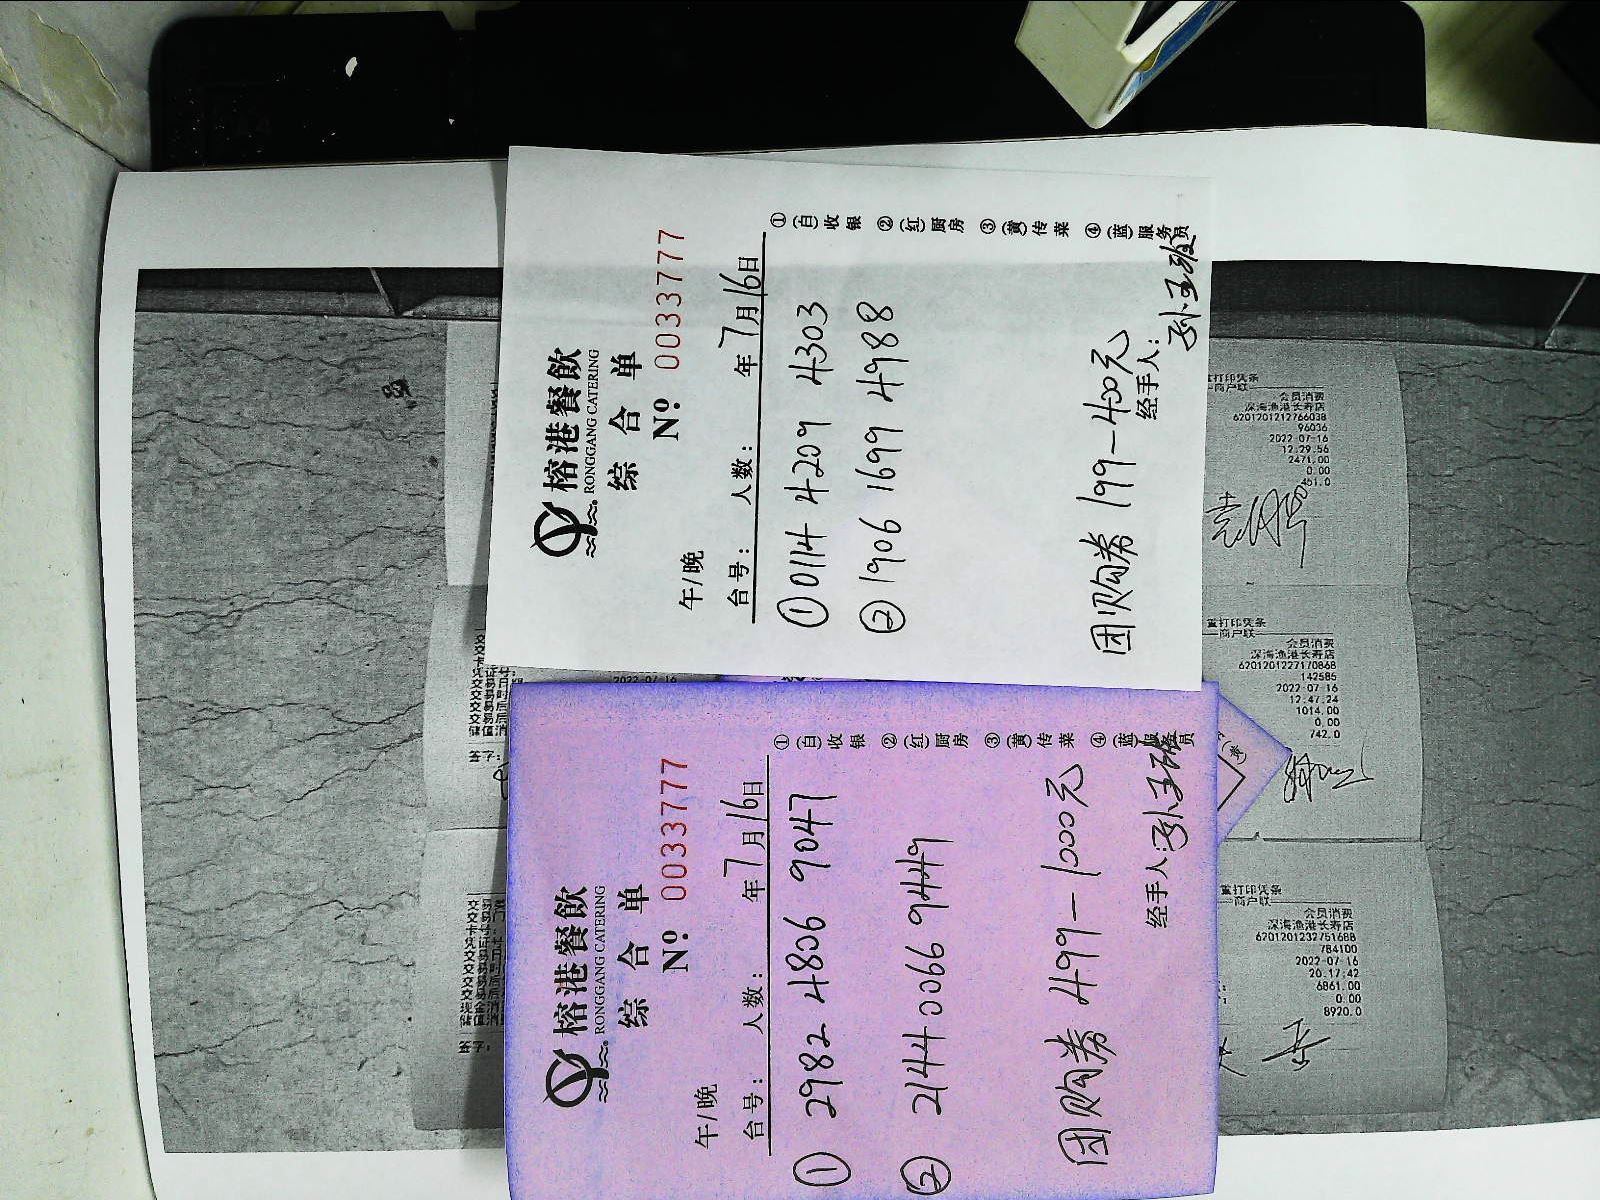 榕港餐飲
RONGGANG CATERING
综合单
№: 0033777
午/晚
台号: 人数: 年7月16日
① 0114 4209 4303
② 1906 1699 4988
团购券 199-400元
经手人:
①(白)收银 ②(红)厨房 ③(黄)传菜 ④(蓝)服务员
榕港餐飲
RONGGANG CATERING
综合单
№: 0033777
午/晚
台号: 人数: 年7月16日
① 2982 4806 9047
② 2144 0066 9449
团购券 499-1000元
经手人:
①(白)收银 ②(红)厨房 ③(黄)传菜 ④(蓝)服务员
重打印凭条
商户联
会员消费
深海渔港长寿店
6201201212766038
96036
2022-07-16
12.29.56
2471.00
0.00
451.0
重打印凭条
商户联
会员消费
深海渔港长寿店
6201201227170868
142585
2022-07-16
12.47.24
1014.00
0.00
742.0
重打印凭条
商户联
会员消费
深海渔港长寿店
6201201232751688
784100
2022-07-16
20.17:42
6861.00
0.00
8920.0
2022-07-16